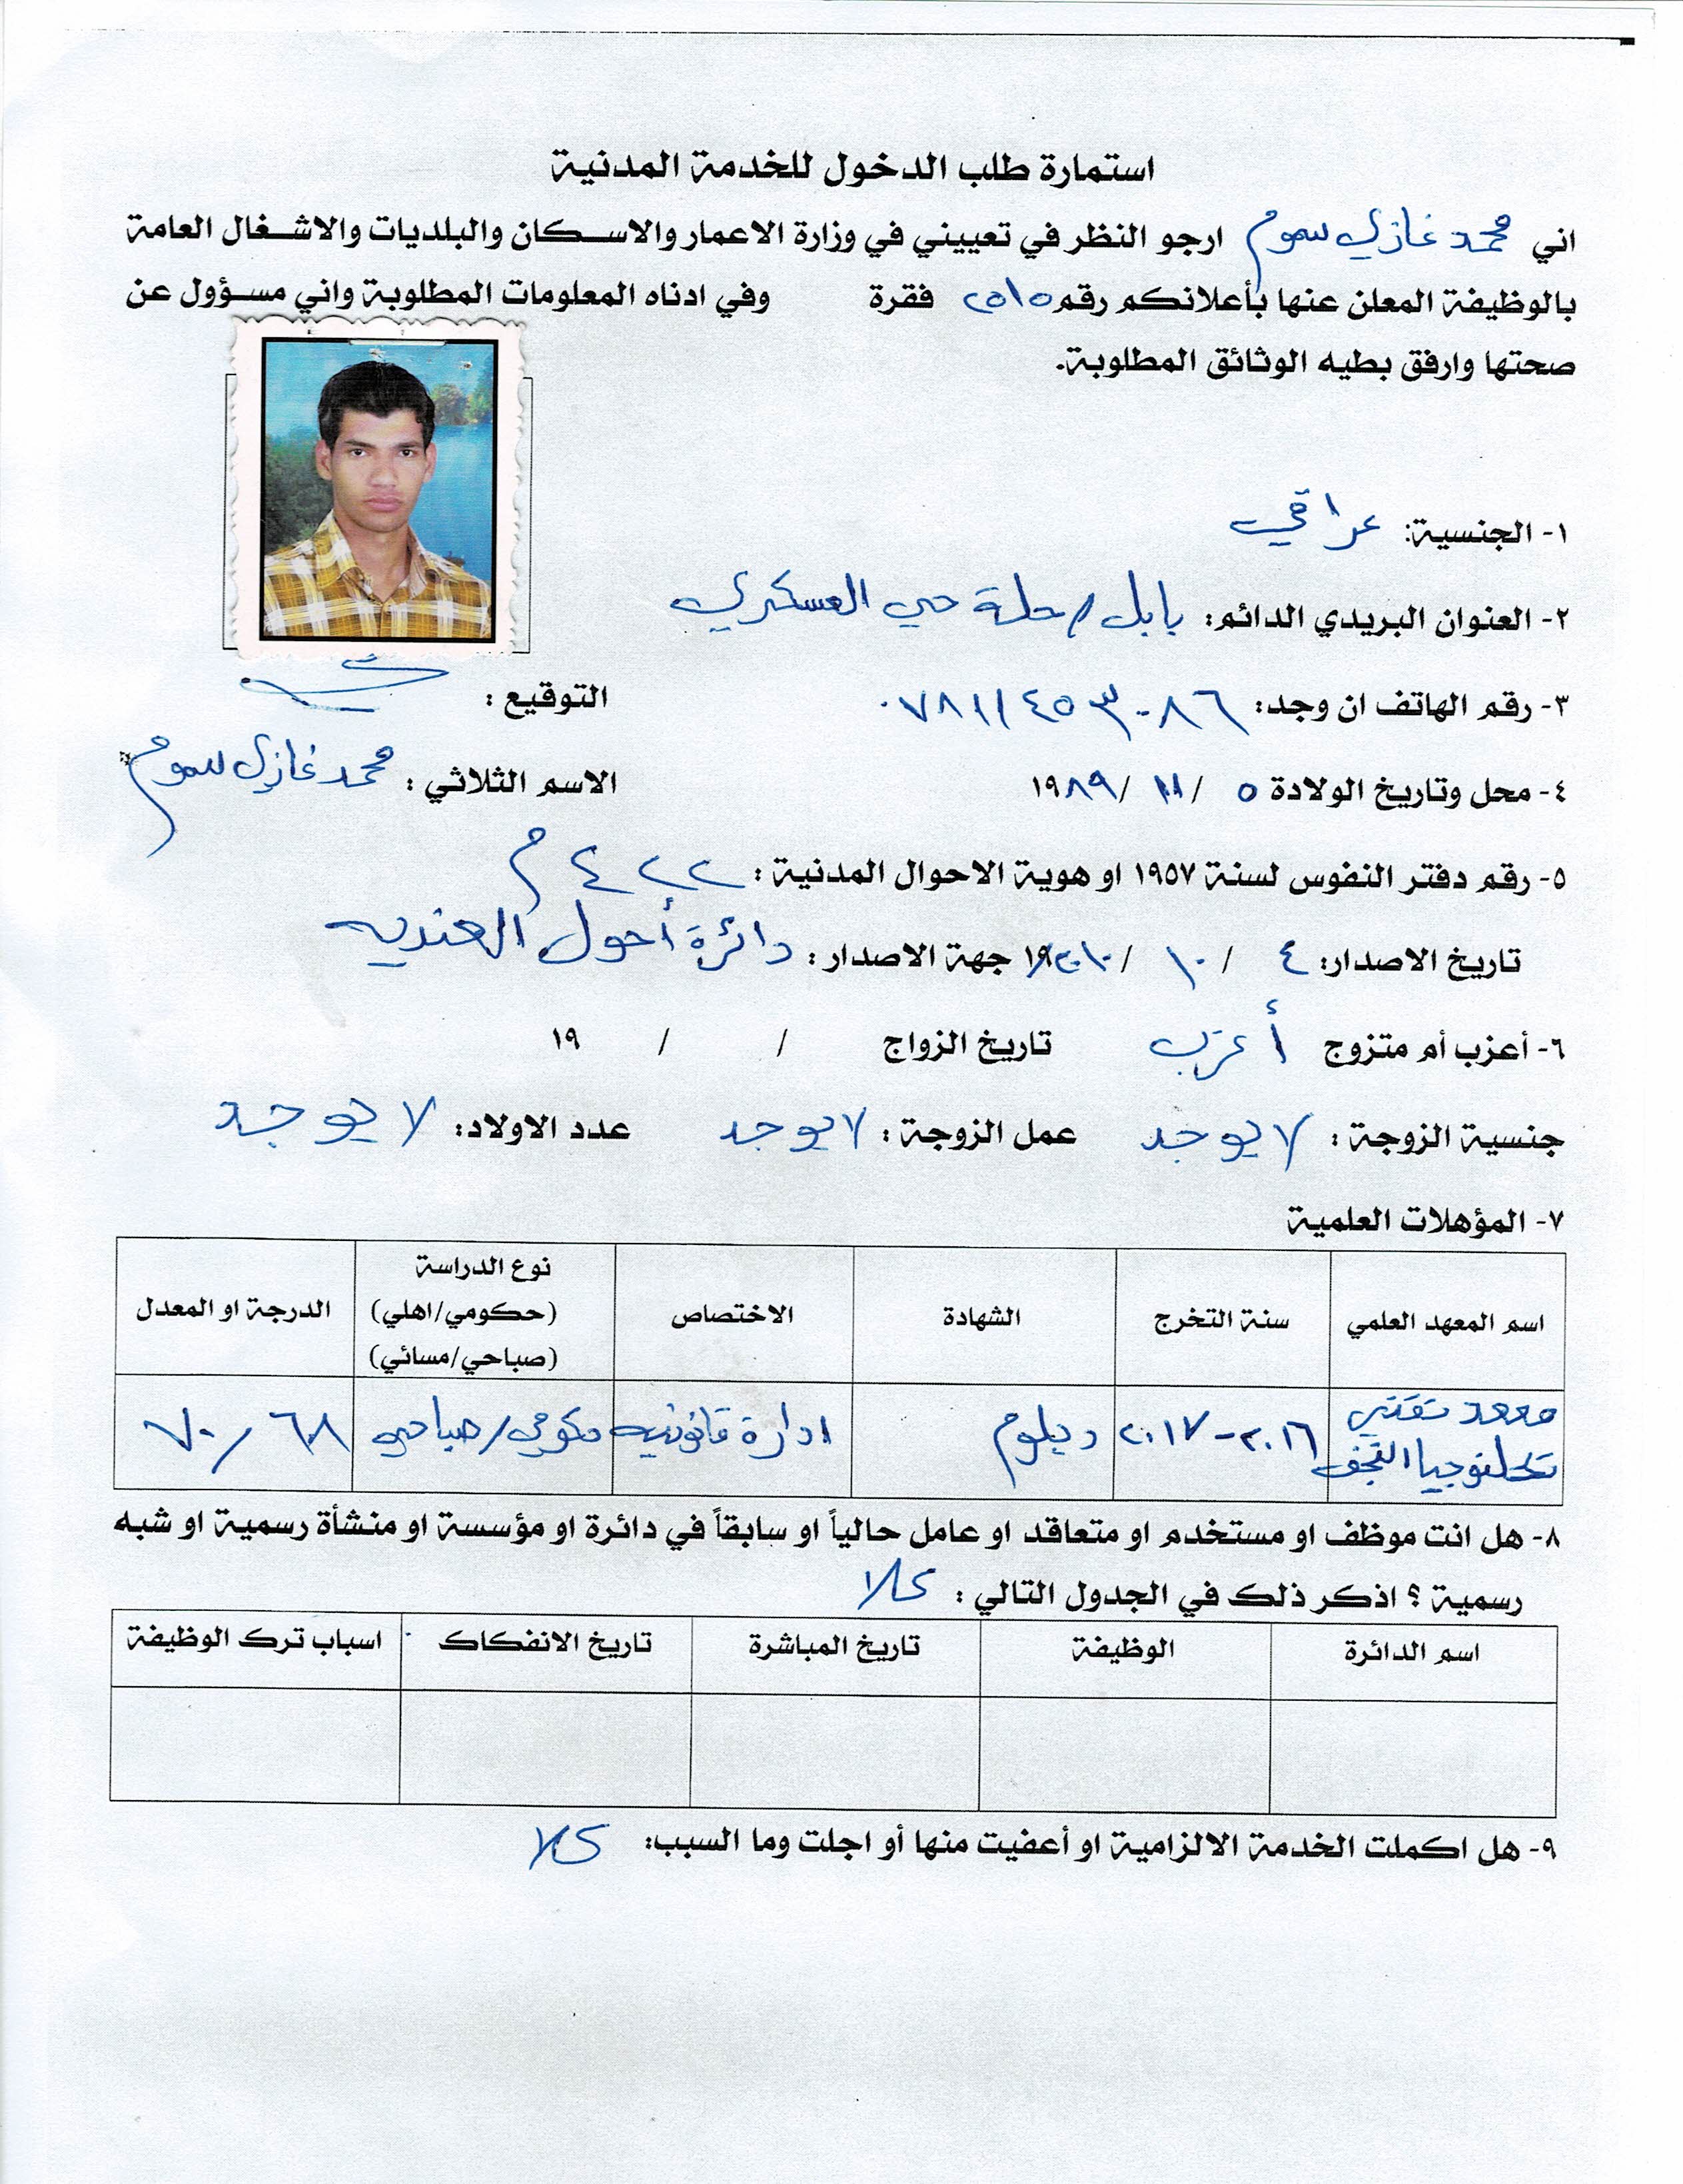 استمارة طلب الدخول للخدمة المدنية
اني محمد غازي سموم ارجو النظر في تعييني في وزارة الاعمار والاسكان والبلديات والاشغال العامة
بالوظيفة المعلن عنها بأعلانكم رقم فقرة وفي ادناه المعلومات المطلوبة واني مسؤول عن
صحتها وارفق بطيه الوثائق المطلوبة.
١- الجنسية: عراقي
٢- العنوان البريدي الدائم: بابل / حلة حي العسكري
٣- رقم الهاتف ان وجد: ٠٧٨١١٤٥٣٠٨٦
التوقيع :
٤- محل وتاريخ الولادة ٥ / ١١ / ١٩٨٩
الاسم الثلاثي : محمد غازي سموم
٥- رقم دفتر النفوس لسنة ١٩٥٧ او هوية الاحوال المدنية :
تاريخ الاصدار: ٤ / ١٠ / ٢٠١٠ جهة الاصدار: دائرة أحول
٦- أعزب أم متزوج أعزب تاريخ الزواج / / ١٩
جنسية الزوجة : لا يوجد عمل الزوجة : لا يوجد عدد الاولاد: لا يوجد
٧- المؤهلات العلمية
اسم المعهد العلمي سنة التخرج الشهادة الاختصاص نوع الدراسة (حكومي/اهلي) (صباحي/مسائي) الدرجة او المعدل
معهد تقني النجف ٢٠١٦-٢٠١٧ دبلوم ادارة قانونيه حكومي/صباحي
٨- هل انت موظف او مستخدم او متعاقد او عامل حالياً او سابقاً في دائرة او مؤسسة او منشأة رسمية او شبه
رسمية ؟ اذكر ذلك في الجدول التالي : كلا
اسم الدائرة الوظيفة تاريخ المباشرة تاريخ الانفكاك اسباب ترك الوظيفة
٩- هل اكملت الخدمة الالزامية او أعفيت منها أو اجلت وما السبب: كلا